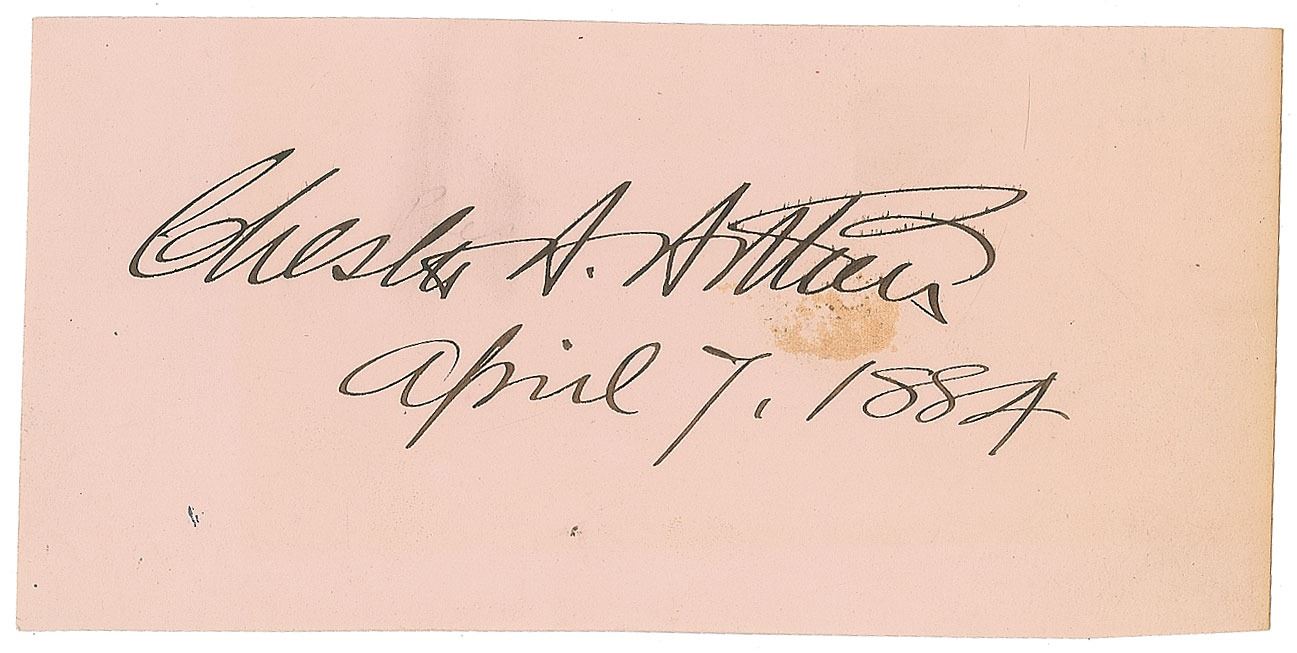 Chester A. Arthur
April 7. 1884